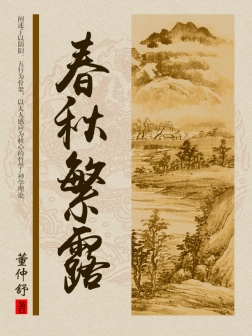 阐述了以阴阳、五行为骨架，以天人感应为核心的哲学-神学理论
春秋繁露
董仲舒
著